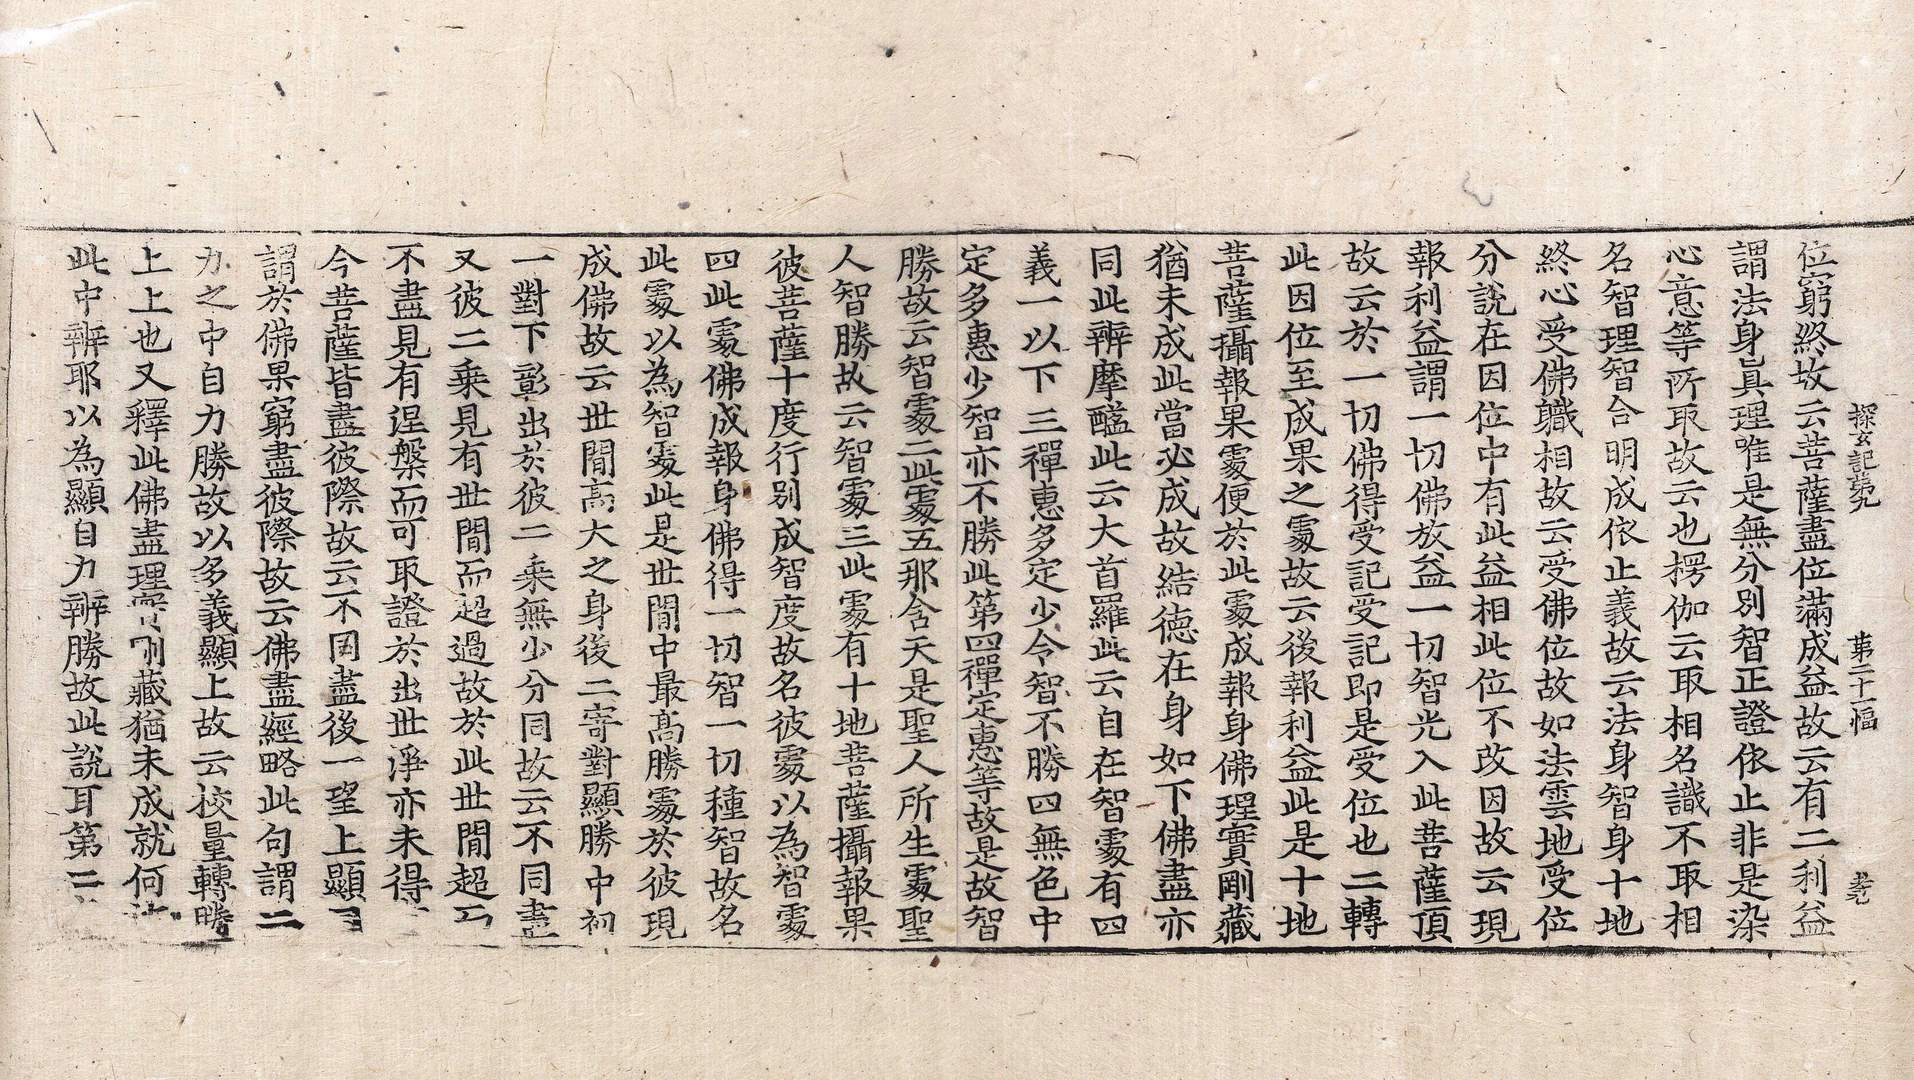 探玄記第九　第二十一幅
位窮終故云菩薩盡位滿成益故云有二利益
謂法身眞理唯是無分別智正證依止非是染
心意等所取故云也楞伽云取相名識不取相
名智理智合明成依止義故云法身智身十地
終心受佛職相故云受佛位故如法雲地受位
分說在因位中有此益相此位不改因故云現
報利益謂一切佛放益一切智光入此菩薩頂
故云於一切佛得受記受記即是受位也二轉
此因位至成果之處故云後報利益此是十地
菩薩攝報果處便於此處成報身佛理實剛藏
猶未成此當必成故結德在身如下佛盡亦
同此辨摩醯此云大首羅此云自在智處有四
義一以下三禪惠多定少令智不勝四無色中
定多惠少智亦不勝此第四禪定惠等故是故智
勝故云智處二此處五那含天是聖人所生處聖
人智勝故云智處三此處有十地菩薩攝報果
彼菩薩十度行別成智度故名彼處以為智處
四此處佛成報身佛得一切智一切種智故名
此處以為智處此是世間中最高勝處於彼現
成佛故云世間高大之身後二寄對顯勝中初
一對下彰出於彼二乘無少分同故云不同盡
又彼二乘見有世間而超過故於此世間超
不盡見有涅槃而可取證於出世淨亦未得
今菩薩皆盡彼際故云不同盡後一望上顯
謂於佛果窮盡彼際故云佛盡經略此句謂二
力之中自力勝故以多義顯上故云挍量轉勝
上上也又釋此佛盡理實剛藏猶未成就何
此中辨耶以為顯自力辨勝故此說耳第二